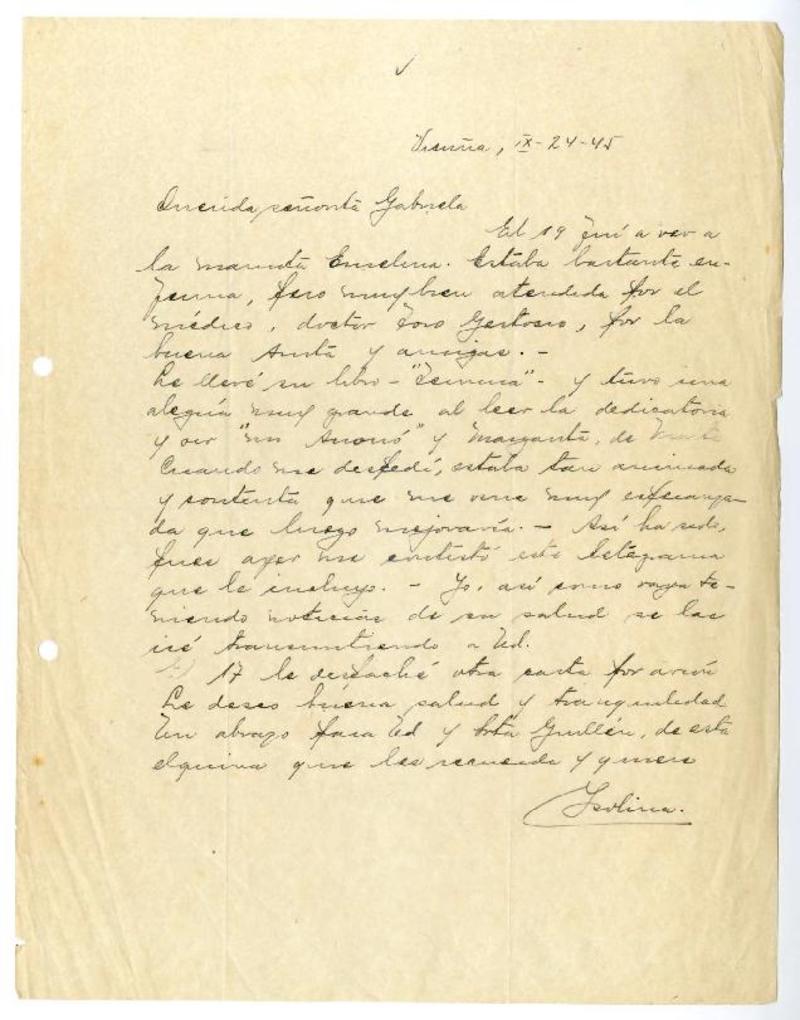 Vicuña, IX-24-45
Querida señorita Gabriela
El 19 fuí a ver a
la mamita Emelina. Estaba bastante en-
ferma, pero muy bien atendida por el
médico, doctor Toro Gertosio, por la
buena Anita y amigas. -
Le llevé su libro - "Ternura" - y tuvo una
alegría muy grande al leer la dedicatoria
y oir "mi" y Margarita, de
Cuando me despedí, estaba tan animada
y contenta que me vine muy esperanza-
da que luego mejoraría. - Así ha sido,
pues ayer me contestó este telegrama
que le incluyo. - Yo, así como vaya te-
niendo noticias de su salud se las
iré transmitiendo a Ud.
El 17 le despaché otra carta por avión
Le deseo buena salud y tranquilidad
Un abrazo para Ud y Guillén, de esta
elquina que les recuerda y quiere
Isolina.